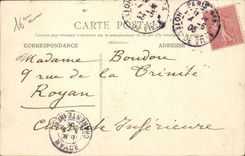 16
CARTE POSTALE
CORRESPONDANCE
ADRESSE
Madame Boudou
9 rue de la Trinité
Royan
Charente Inférieure
PARIS
ROYAN